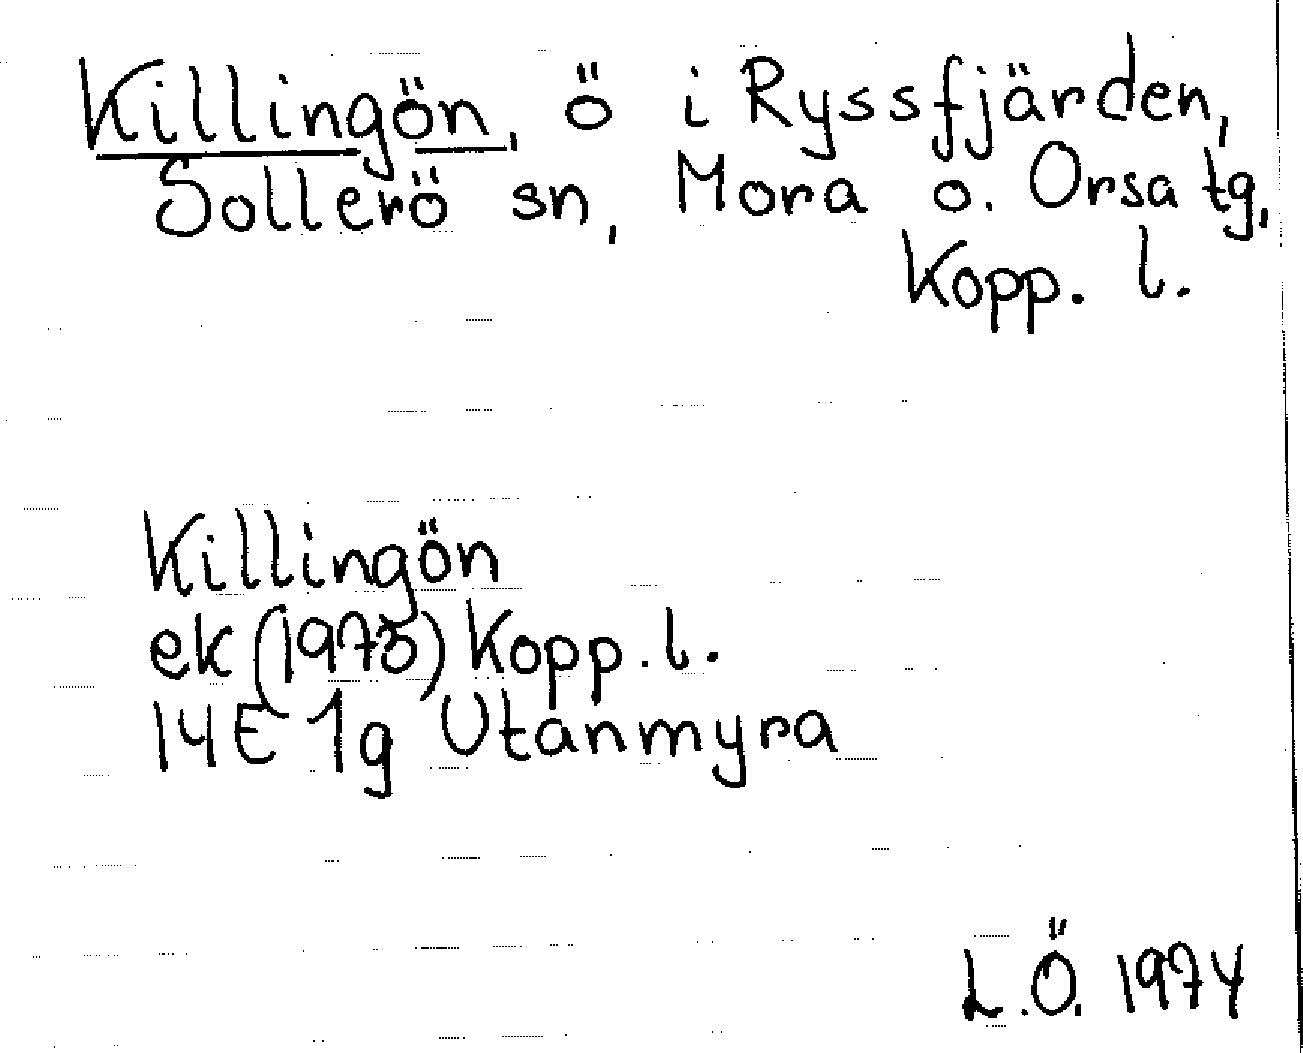 Killingön, ö i Ryssfjärden,
Sollerö sn, Mora o. Orsa tg,
Kopp. l.
Killingön
ek (1973) Kopp. l.
14E 1g Utanmyra
L.Ö. 1974